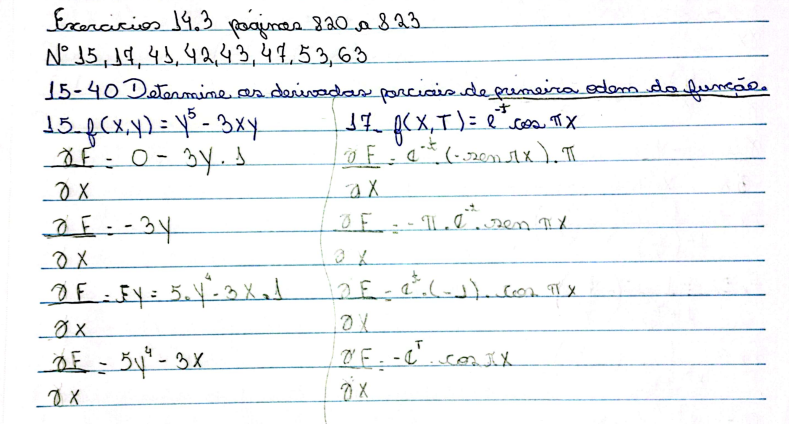 Exercicios 14.3 páginas 820 a 823
Nº 15, 17, 41, 42, 43, 47, 53, 63
15-40 Determine as derivadas parciais de primeira odem da função.
15- f(X,Y) = Y⁵ - 3XY
∂F = 0 - 3Y . 1
∂X
∂F = -3Y
∂X
∂F = FY = 5.Y⁴ - 3X.1
∂X
∂F = 5Y⁴ - 3X
∂X
17- f(X,T) = e⁻ᵗ cos πX
∂F = e⁻ᵗ.(-sen πX).π
∂X
∂F = -π.e⁻ᵗ.sen πX
∂X
∂F = eᵗ.(-1).cos πX
∂X
∂F = -eᵀ.cos πX
∂X